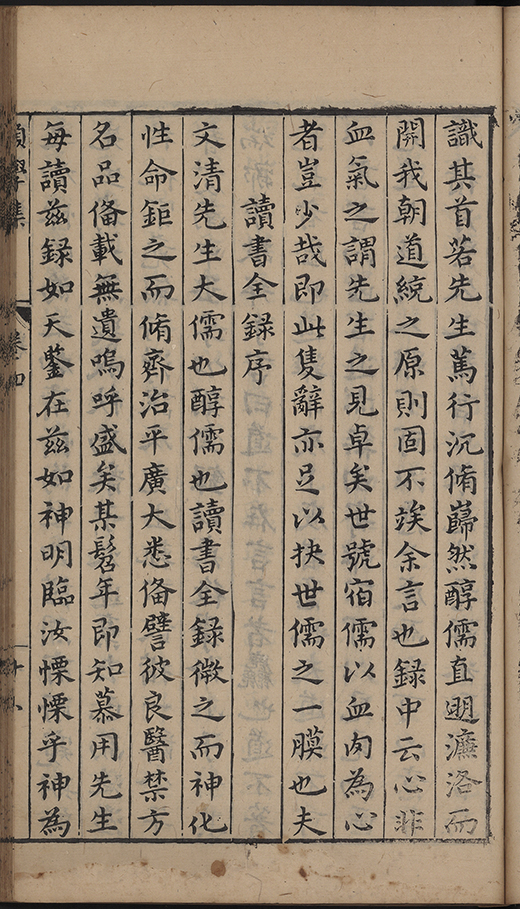 識其首若先生篤行沉脩巋然醇儒直遡濂洛而
開我朝道統之原則固不竢余言也録中云心非
血氣之謂先生之見卓矣世號宿儒以血肉為心
者豈少哉即此隻辭亦足以抉世儒之一膜也夫
讀書全録序
文清先生大儒也醇儒也讀書全録微之而神化
性命鉅之而脩齊治平廣大悉俻譬彼良醫禁方
名品俻載無遺嗚呼盛矣某髫年即知慕用先生
每讀兹録如天鑒在兹如神明臨汝慄慄乎神為
學集
卷四